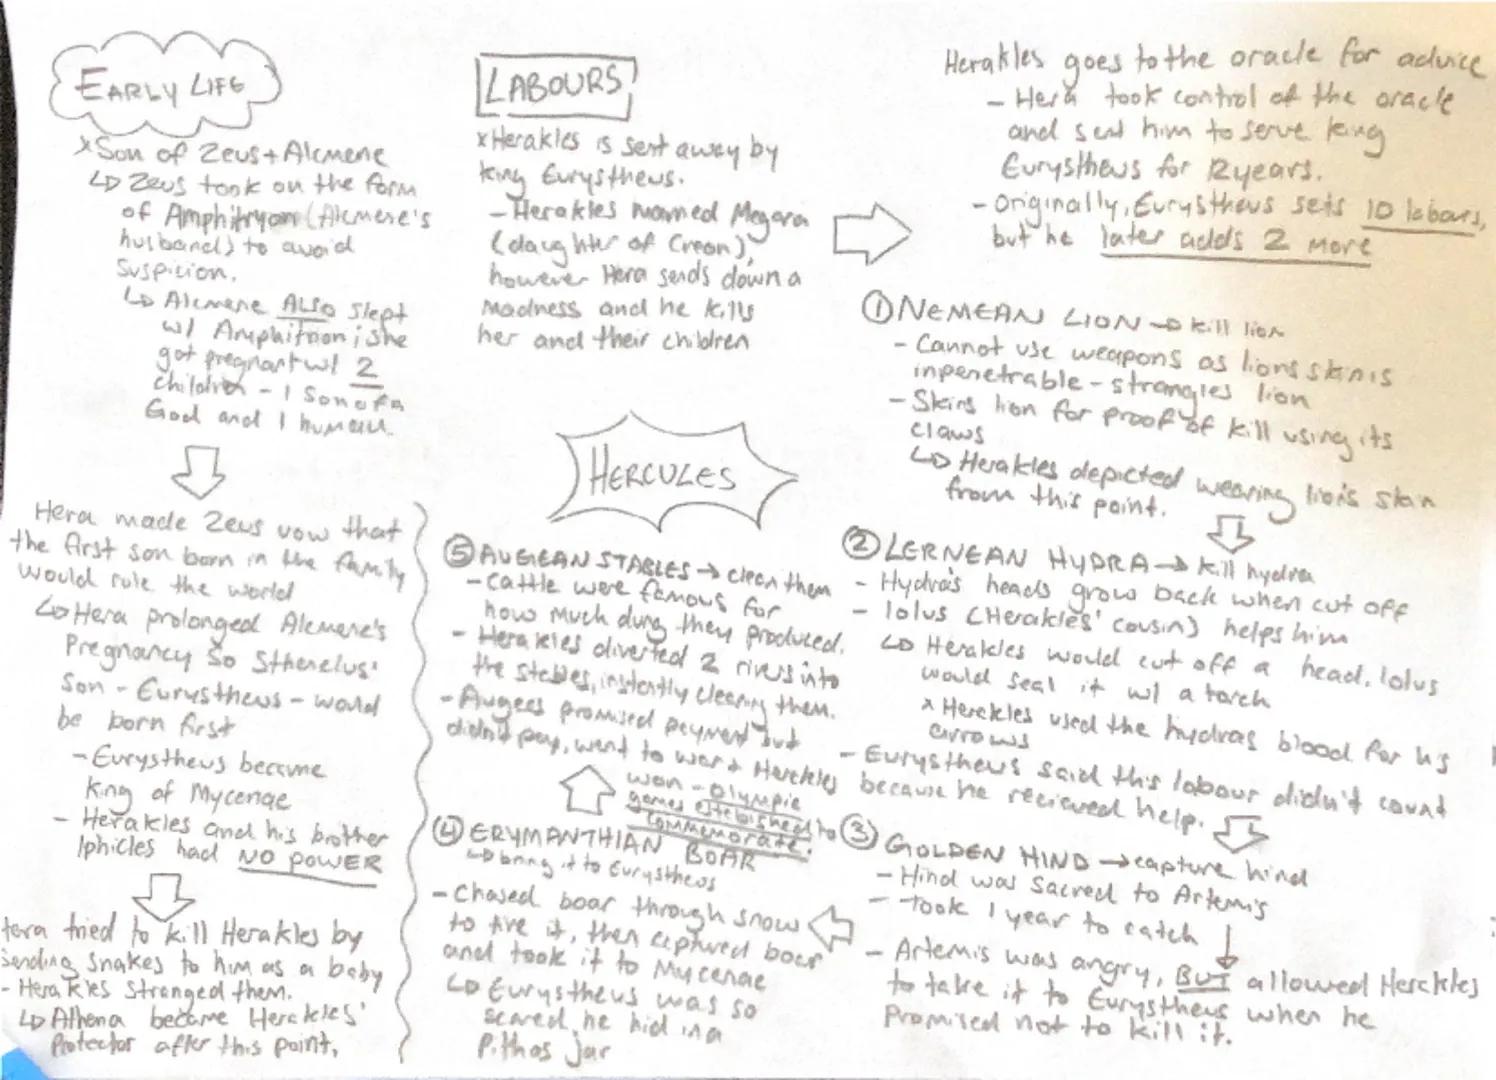 EARLY LIFE
x Son of Zeus + Alcmene
↳ Zeus took on the form
of Amphitryon (Alcmene's
husband) to avoid
suspicion.
↳ Alcmene ALSO slept
w/ Amphitrion; she
got pregnant w/ 2
children - 1 son of a
God and 1 human.
Hera made Zeus vow that
the first son born in the family
would rule the world
↳ Hera prolonged Alcmene's
Pregnancy so Sthenelus'
son - Eurystheus - would
be born first
- Eurystheus became
King of Mycenae
- Herakles and his brother
Iphicles had NO POWER
Hera tried to kill Herakles by
sending snakes to him as a baby
- Herakles stranged them.
↳ Athena became Herakles'
Protector after this point.
LABOURS
x Herakles is sent away by
king Eurystheus.
- Herakles married Megara
(daughter of Creon),
however Hera sends down a
madness and he kills
her and their children
Herakles goes to the oracle for advice
- Hera took control of the oracle
and sent him to serve king
Eurystheus for 12 years.
- Originally, Eurystheus sets 10 labours,
but he later adds 2 more
HERCULES
① NEMEAN LION → kill lion
- Cannot use weapons as lions skin is
inpenetrable - strangles lion
- Skins lion for proof of kill using its
claws
↳ Herakles depicted wearing lion's skin
from this point.
② LERNEAN HYDRA → kill hydra
- Hydra's heads grow back when cut off
- Iolus (Herakles' cousin) helps him
↳ Herakles would cut off a head. Iolus
would seal it w/ a torch
x Herakles used the hydras blood for his
arrows
- Eurystheus said this labour didn't count
because he recieved help.
③ GOLDEN HIND → capture hind
- Hind was sacred to Artemis
- Took 1 year to catch
- Artemis was angry, BUT allowed Herakles
to take it to Eurystheus when he
promised not to kill it.
④ ERYMANTHIAN BOAR
↳ bring it to Eurystheus
- Chased boar through snow
to tire it, then captured boar
and took it to Mycenae
↳ Eurystheus was so
scared he hid in a
Pithos jar
⑤ AUGEAN STABLES → clean them
- Cattle were famous for
how much dung they produced.
- Herakles diverted 2 rivers into
the stables, instantly cleaning them.
- Augees promised payment but
didn't pay, went to war + Herakles
won - Olympic
games established to
commemorate.